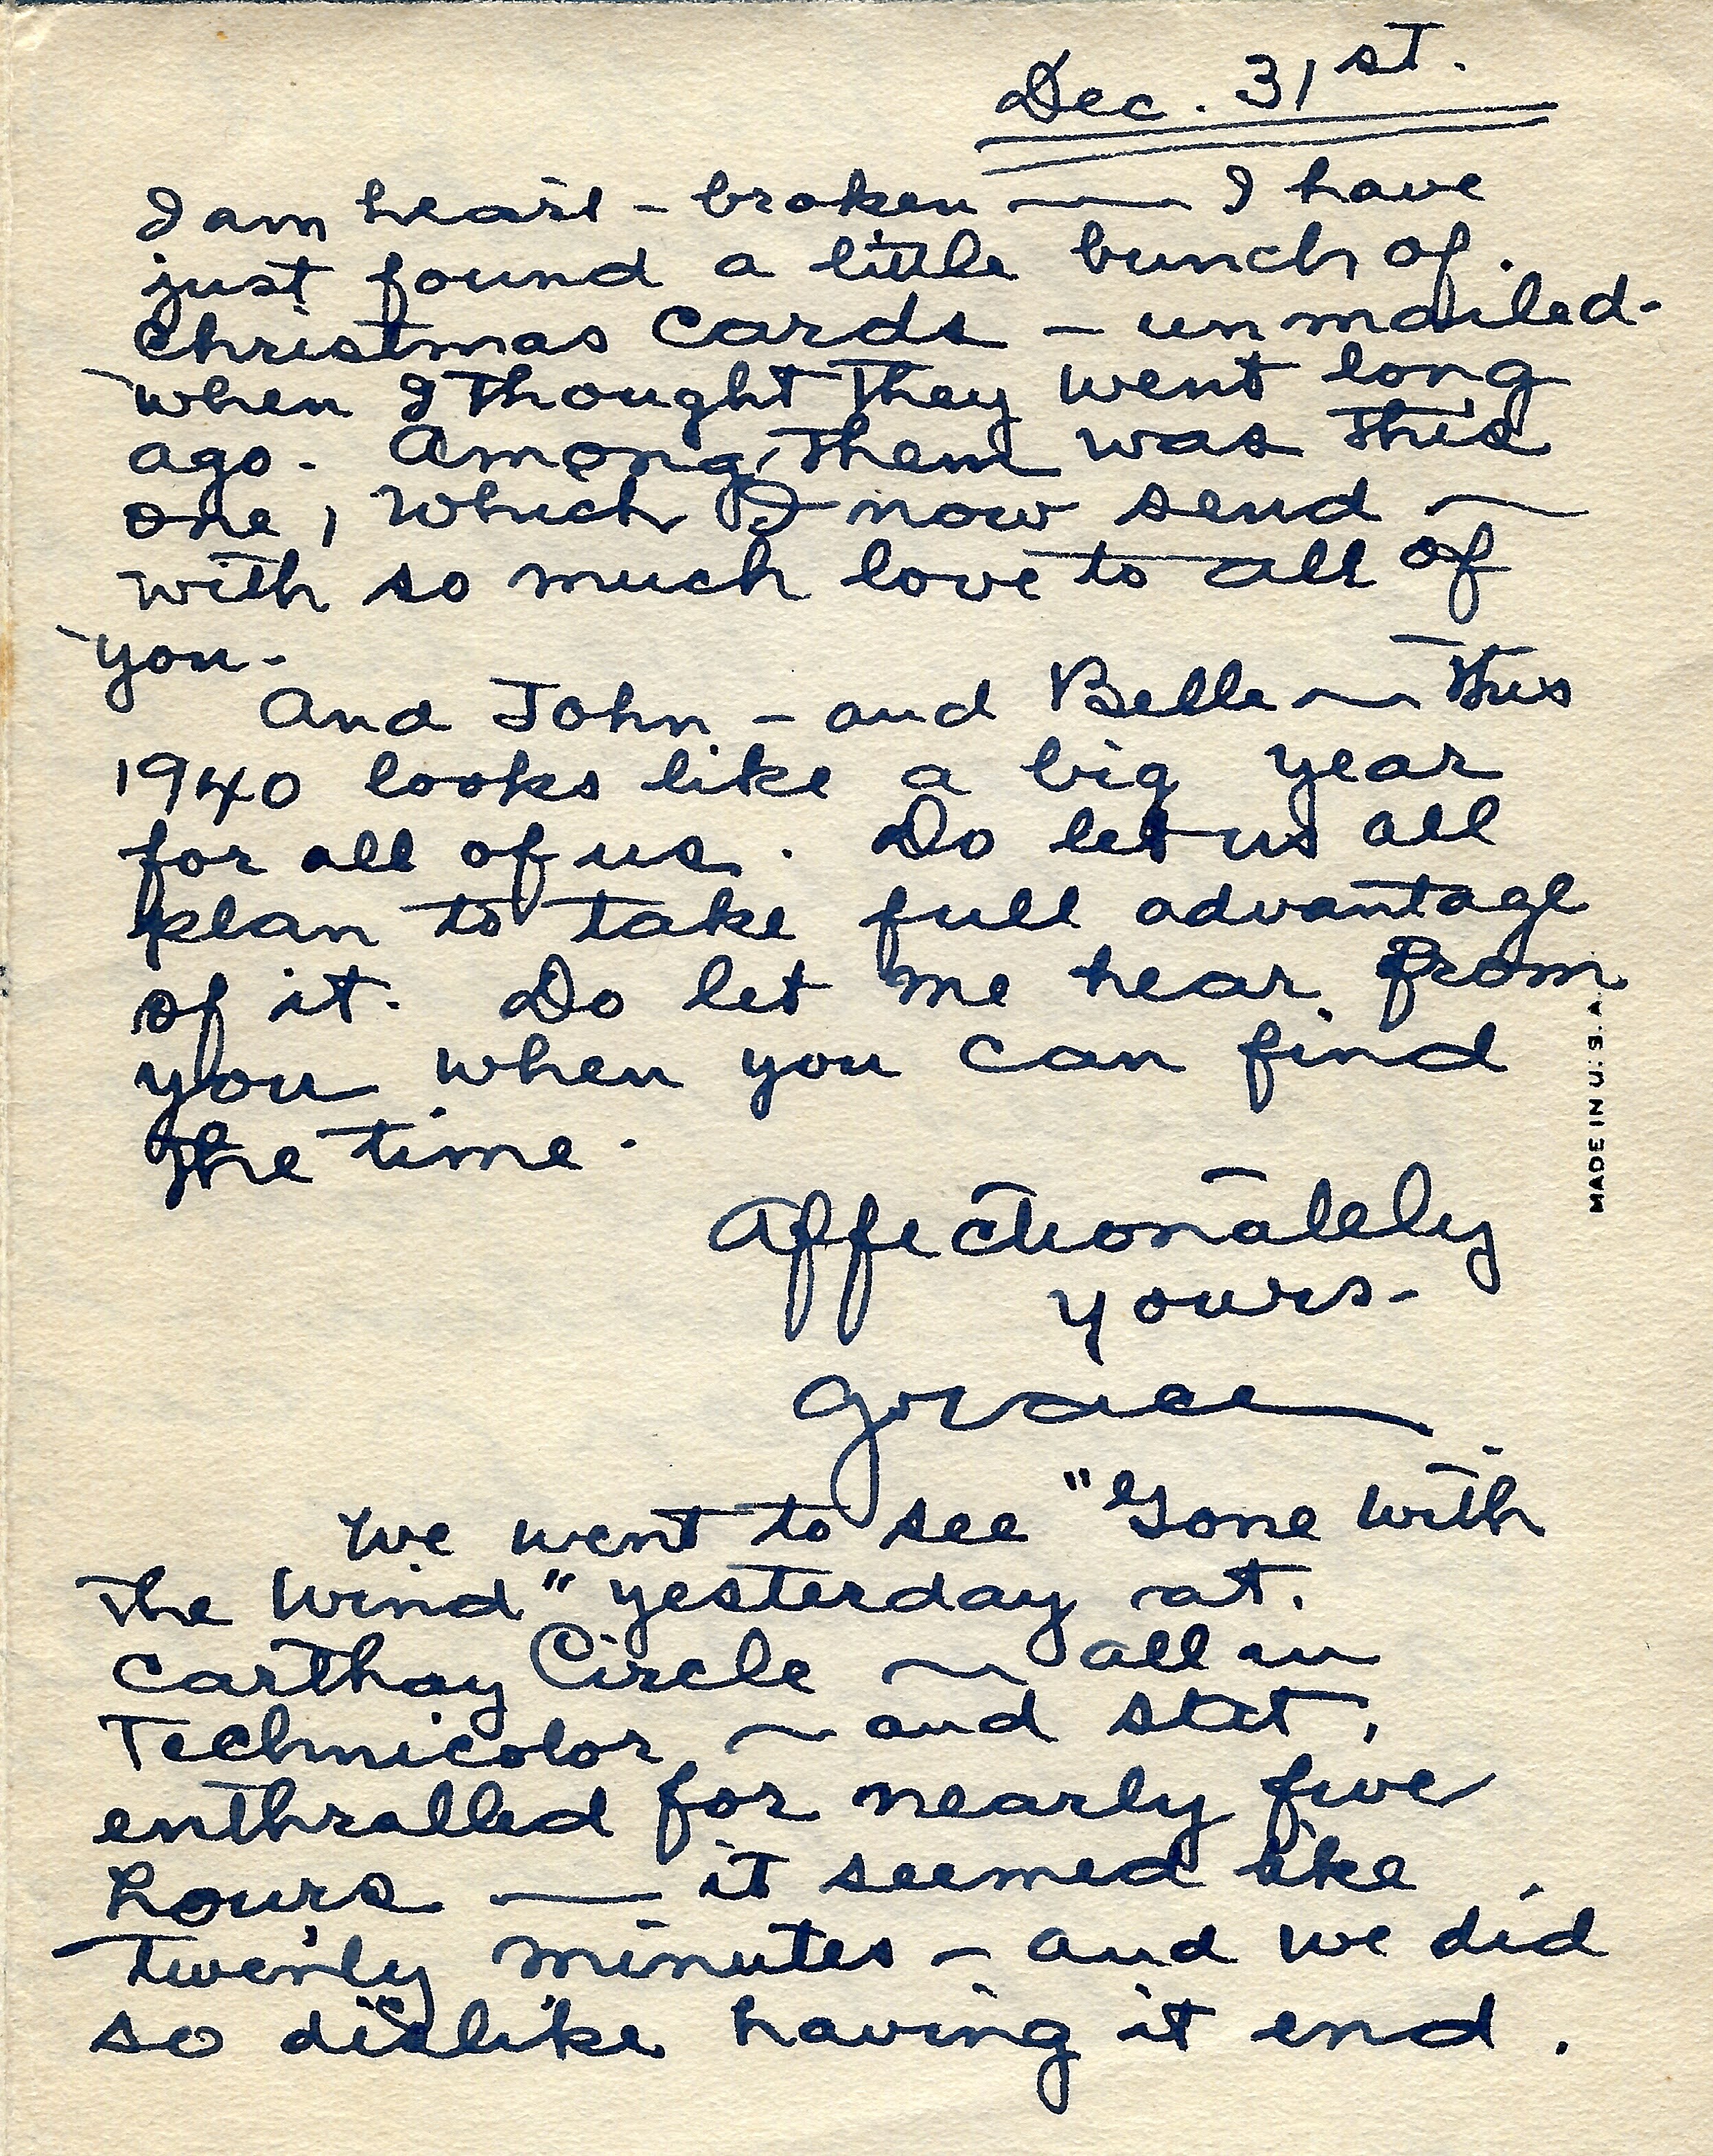 Dec. 31st.
I am heart-broken — I have
just found a little bunch of
Christmas cards - unmailed -
when I thought they went long
ago. Among them was this
one, which I now send —
with so much love to all of
you -
And John - and Belle — this
1940 looks like a big year
for all of us. Do let us all
plan to take full advantage
of it. Do let me hear from
you when you can find
the time.
Affectionately
yours -
Grace
We went to see "Gone With
the Wind" yesterday at
Carthay Circle — all in
Technicolor — and sat
enthralled for nearly five
hours — it seemed like
twenty minutes - and we did
so dislike having it end.
MADE IN U.S.A.